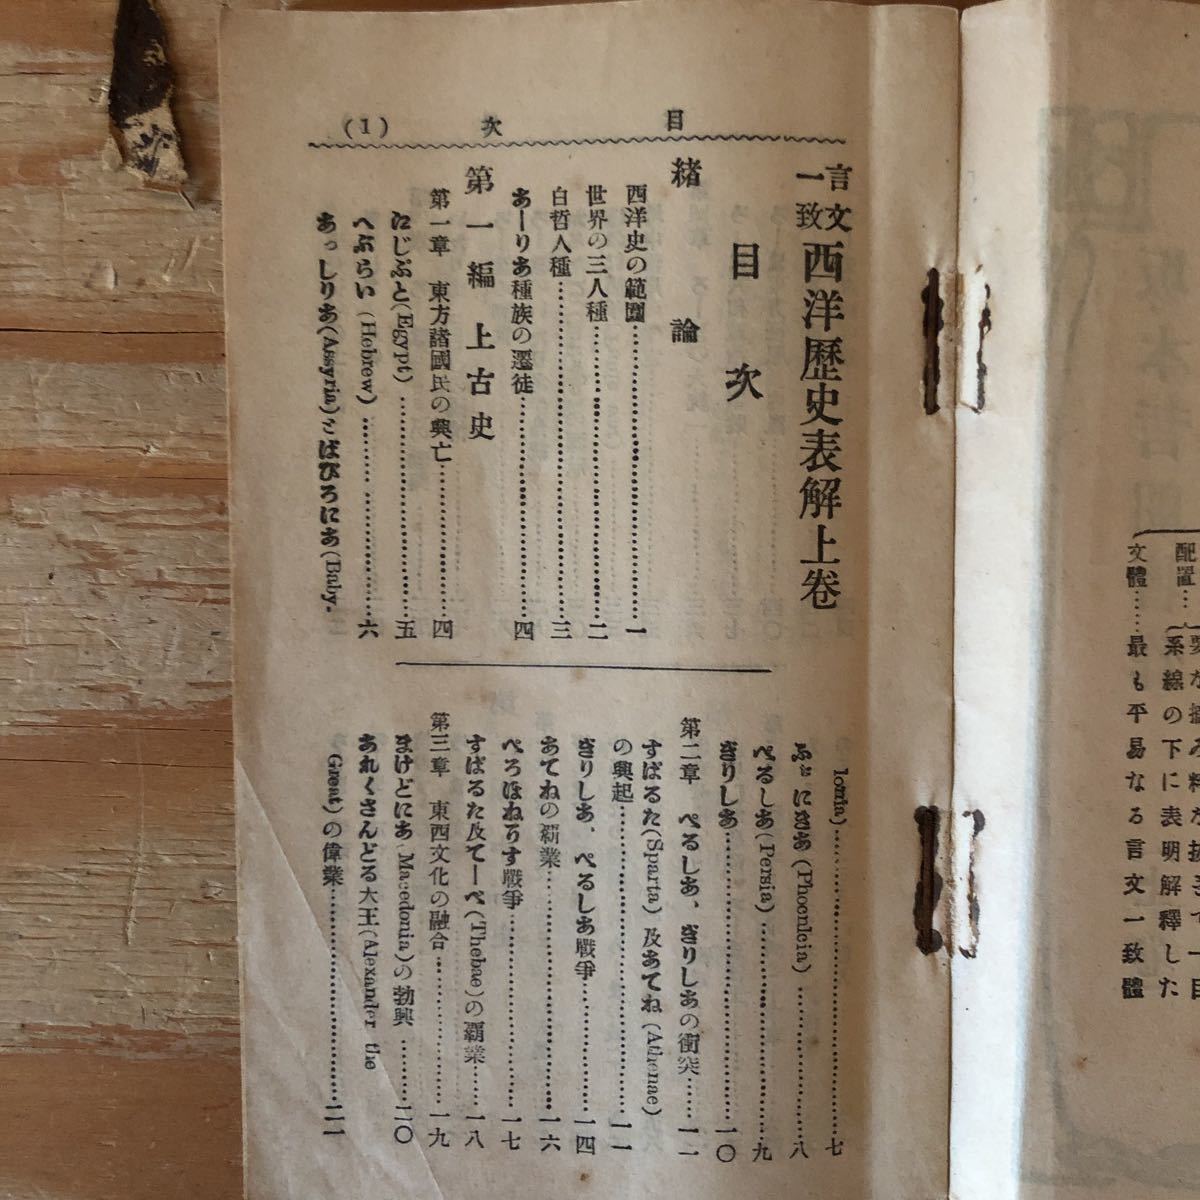 配置…
系線の下に表明解釋した
文體……最も平易なる言文一致體
目次 (1)
言文一致 西洋歷史表解上卷
目次
緒論
西洋史の範圍……一
世界の三人種……二
白哲人種……三
あーりあ種族の遷徒……四
第一編 上古史
第一章 東方諸國民の興亡……四
にじぷと(Egypt)……五
へぶらい(Hebrew)……六
あっしりあ(Assyria)とばびろにあ(Baby-
lonia)……七
ふぃにきあ(Phoenicia)……八
ぺるしあ(Persia)……九
ぎりしあ……一〇
第二章 ぺるしあ、ぎりしあの衝突……一一
すぱるた(Sparta)及あてね(Athenae)
の興起……一一
ぎりしあ、ぺるしあ戰爭……一四
あてねの覇業……一六
ぺろぽねりす戰爭……一七
すぱるた及てーべ(Thebae)の覇業……一八
第三章 東西文化の融合……一九
まけどにあ(Macedonia)の勃興……二〇
あれくさんどる大王(Alexander the
Great)の偉業……二一